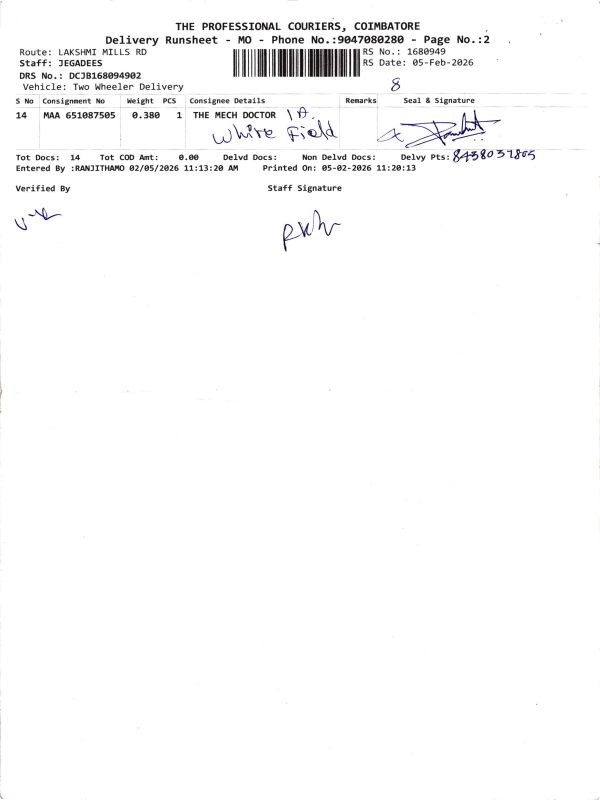 THE PROFESSIONAL COURIERS, COIMBATORE
Delivery Runsheet - MO - Phone No.:9047080280 - Page No.:2
Route: LAKSHMI MILLS RD RS No.: 1680949
Staff: JEGADEES RS Date: 05-Feb-2026
DRS No.: DCJB168094902
Vehicle: Two Wheeler Delivery 8
S No Consignment No Weight PCS Consignee Details Remarks Seal & Signature
14 MAA 651087505 0.380 1 THE MECH DOCTOR
White Field
Tot Docs: 14 Tot COD Amt: 0.00 Delvd Docs: Non Delvd Docs: Delvy Pts: 8438037805
Entered By :RANJITHAMO 02/05/2026 11:13:20 AM Printed On: 05-02-2026 11:20:13
Verified By Staff Signature